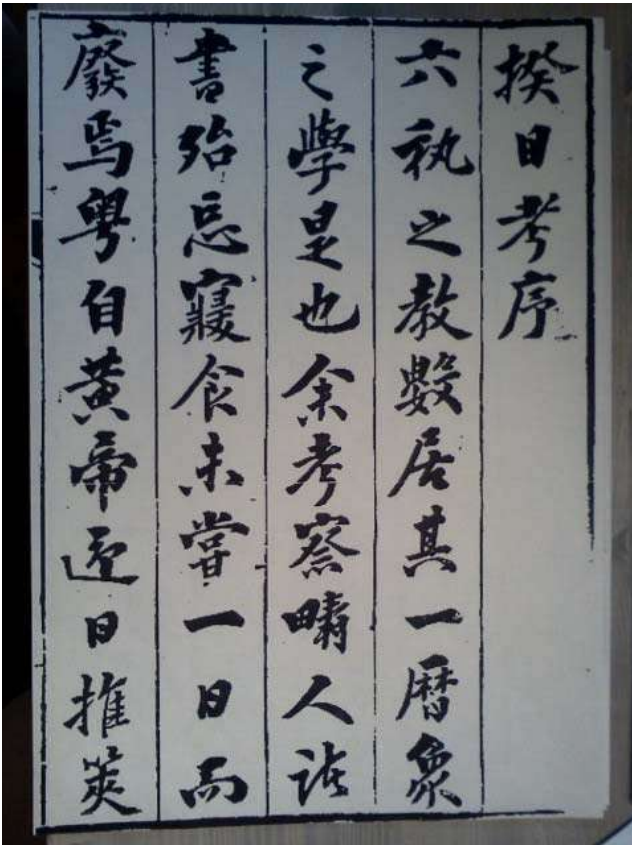 揆日考序
六執之教數居其一曆象
之學是也余考察疇人諸
書殆忘寢食未嘗一日而
廢焉粵自黃帝迎日推筴